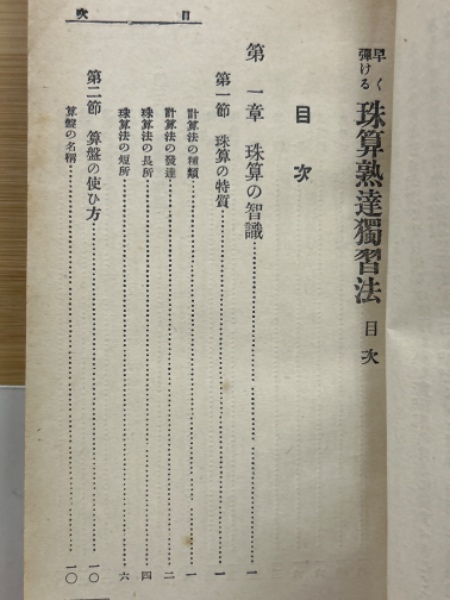 早く
弾ける
珠算熟達獨習法 目次
目次
第一章 珠算の智識……一
第一節 珠算の特質……一
計算法の種類……一
計算法の發達……二
珠算法の長所……四
珠算法の短所……六
第二節 算盤の使ひ方……一〇
算盤の名稱……一〇
目次